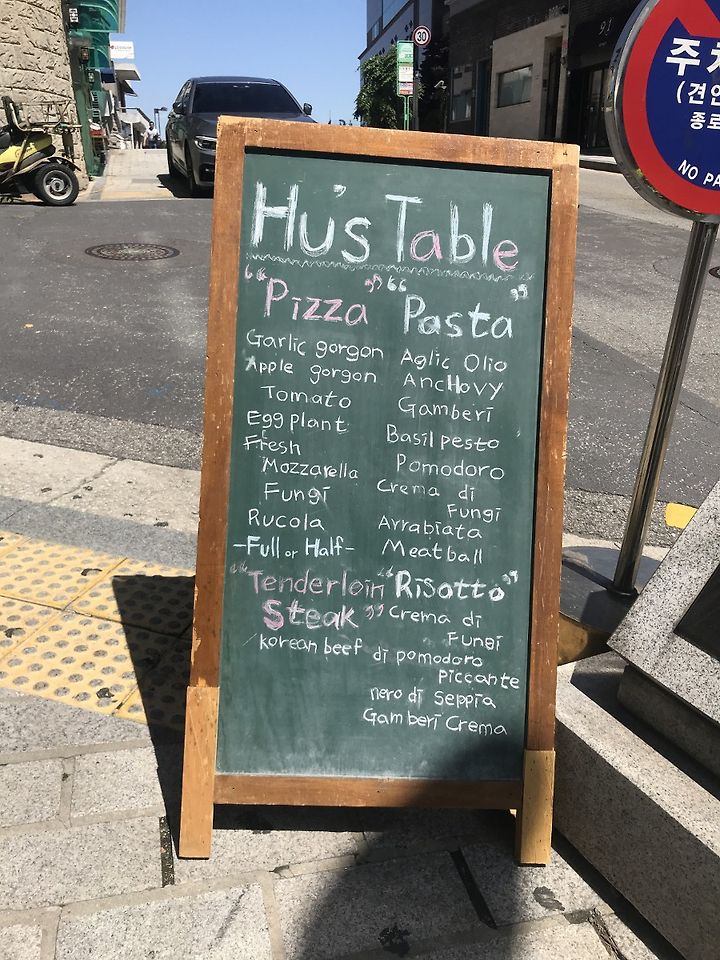 Hu's Table
"Pizza"
Garlic gorgon
Apple gorgon
Tomato
Eggplant
Fresh
Mozzarella
Fungi
Rucola
-Full or Half-
"Tenderloin
Steak"
korean beef
"Pasta"
Aglic Olio
AncHovy
Gamberi
Basil pesto
Pomodoro
Crema di
Fungi
Arrabiata
Meatball
"Risotto"
Crema di
Fungi
di pomodoro
piccante
nero di seppia
Gamberi Crema
30
주차
(견인
종로
NO PA
91